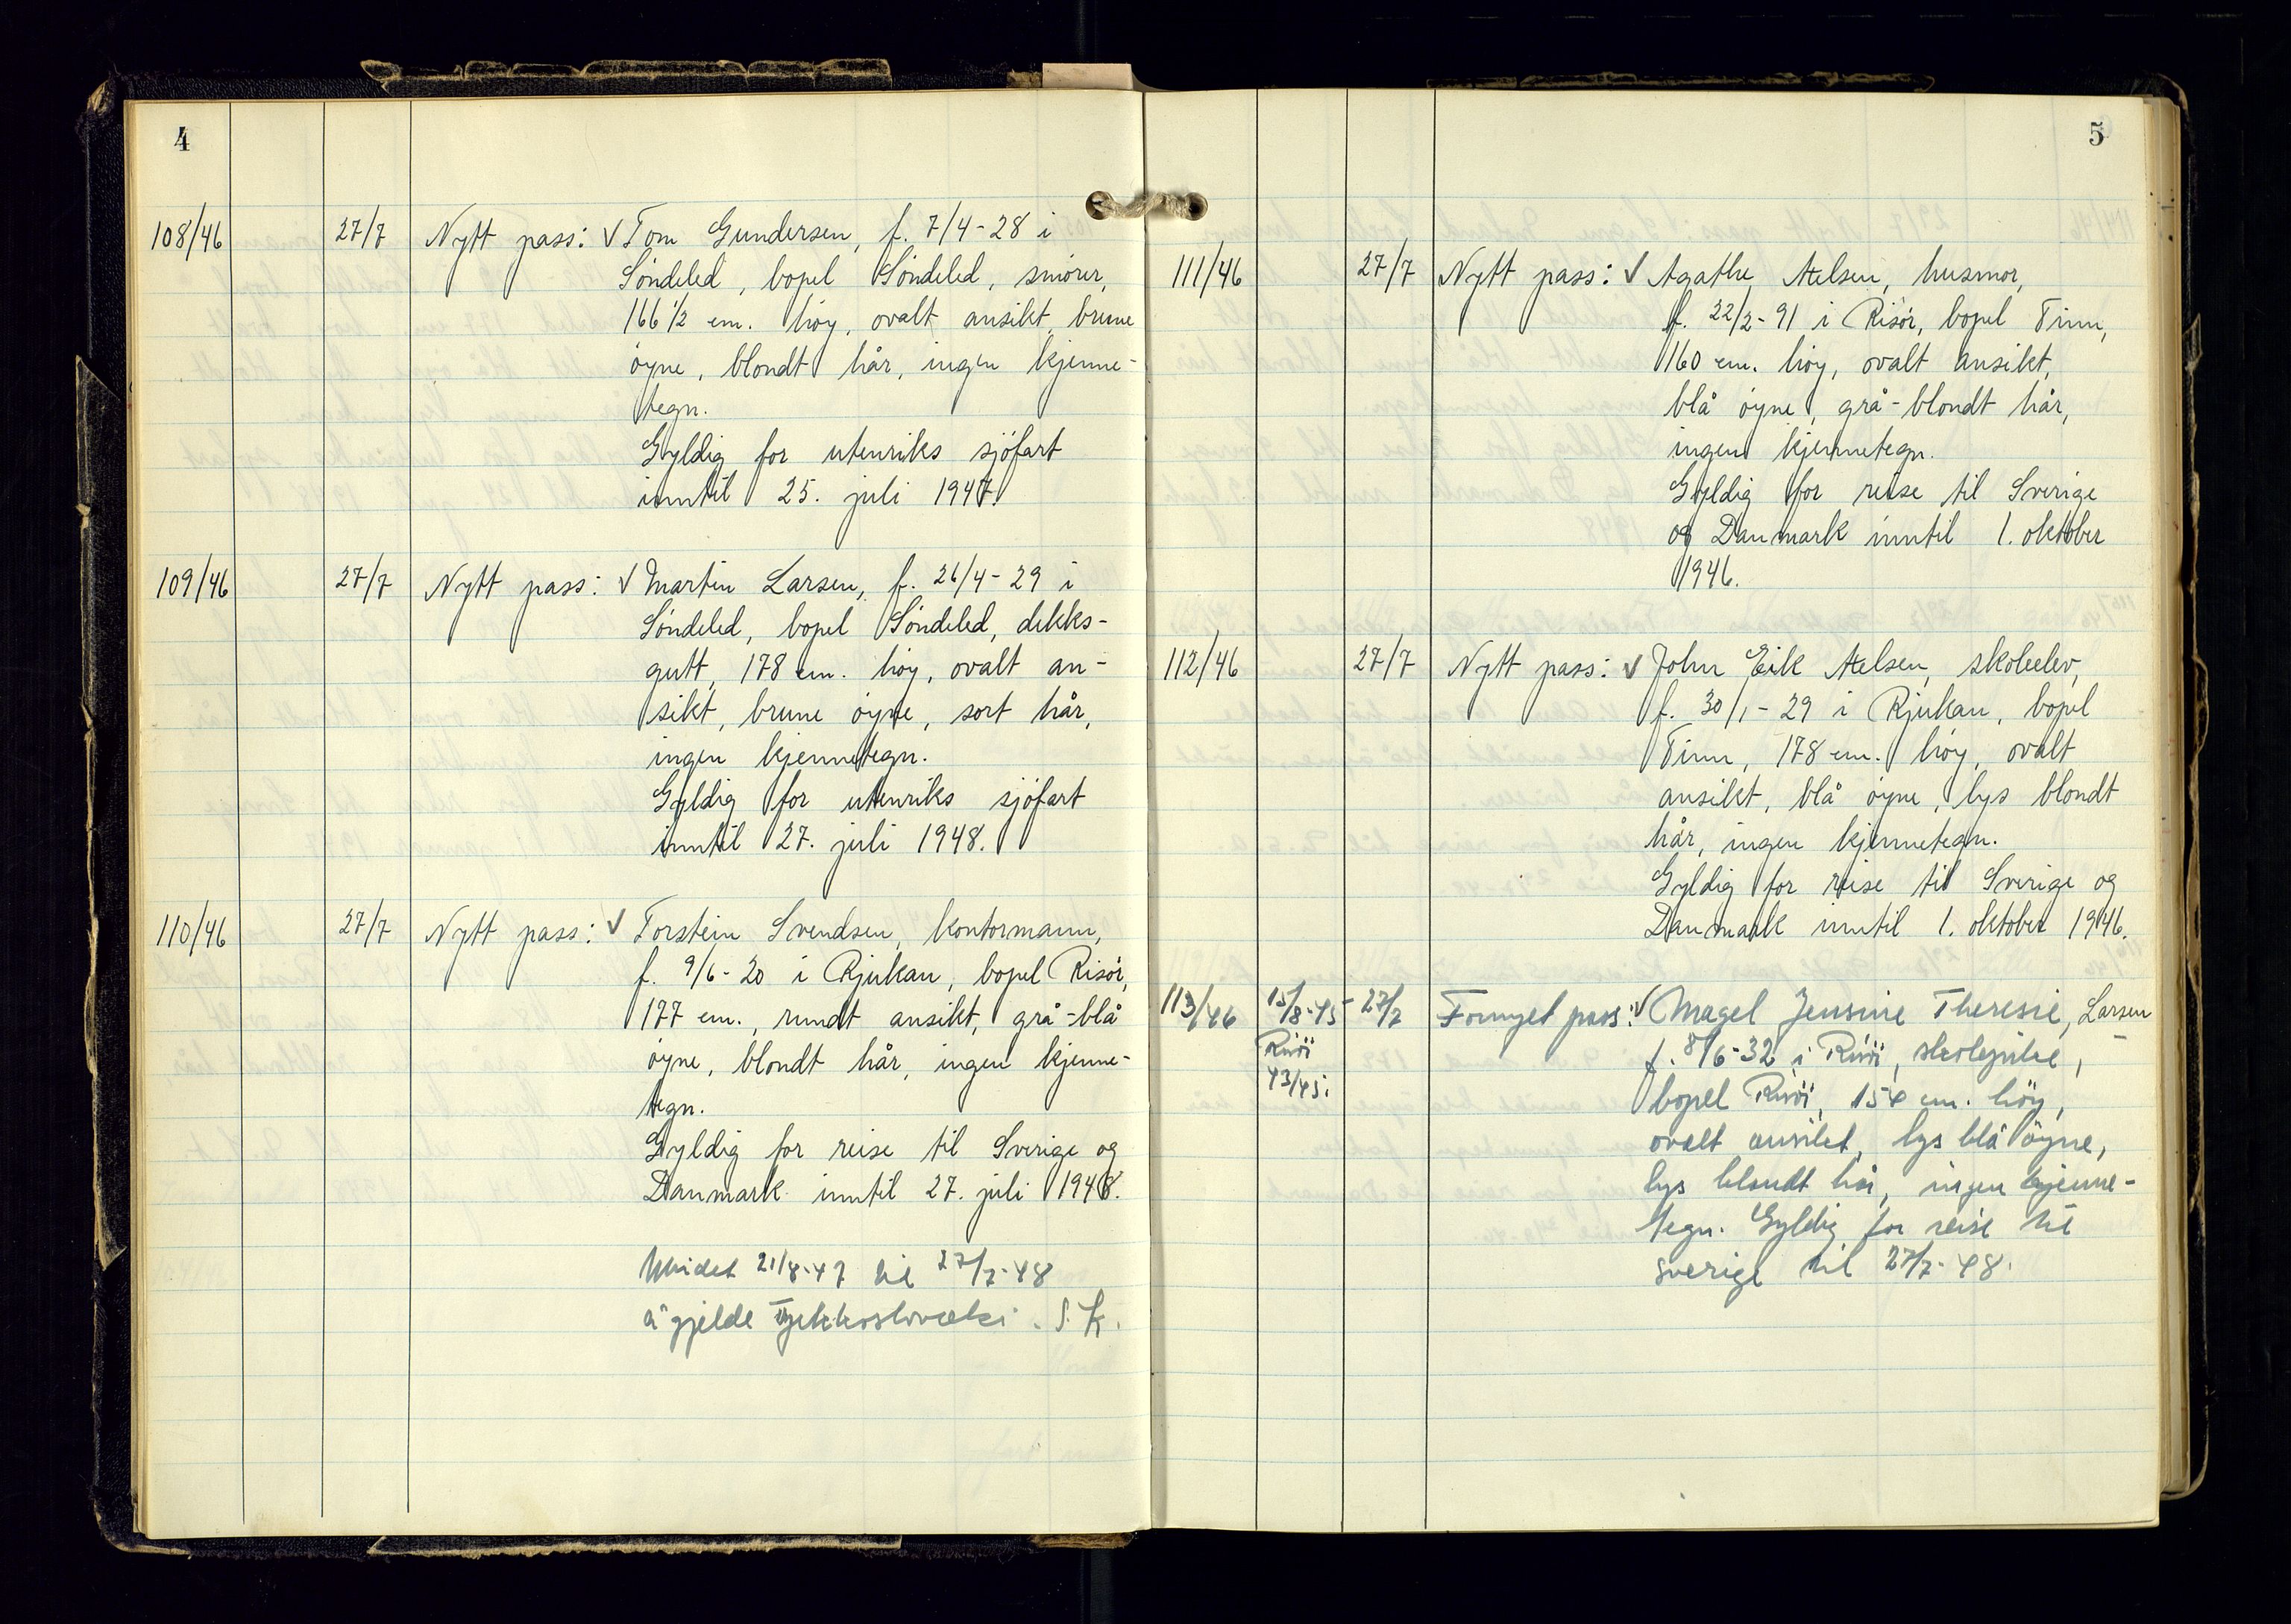 4
108/46 27/7 Nytt pass: √ Tom Gundersen, f. 7/4-28 i
Söndeled, bopel Söndeled, smörer,
166 1/2 cm. höy, ovalt ansikt, brune
öyne, blondt hår, ingen kjenne-
tegn.
Gyldig for utenriks sjöfart
inntil 25. juli 1947.
109/46 27/7 Nytt pass: √ Martin Larsen, f. 26/4-29 i
Söndeled, bopel Söndeled, dekks-
gutt, 178 cm. höy, ovalt an-
sikt, brune öyne, sort hår,
ingen kjennetegn.
Gyldig for utenriks sjöfart
inntil 27. juli 1948.
110/46 27/7 Nytt pass: √ Torstein Svendsen, kontormann,
f. 9/6-20 i Rjukan, bopel Risör,
177 cm., rundt ansikt, grå-blå
öyne, blondt hår, ingen kjenne-
tegn.
Gyldig for reise til Sverige og
Danmark inntil 27. juli 1948.
Utvidet 21/8-47 til 27/7-48
å gjelde Tjekkoslovaki. S.K.
5
111/46 27/7 Nytt pass: √ Agathe Axelsen, husmor,
f. 22/2-91 i Risör, bopel Tinn,
160 cm. höy, ovalt ansikt,
blå öyne, grå-blondt hår,
ingen kjennetegn.
Gyldig for reise til Sverige
og Danmark inntil 1. oktober
1946.
112/46 27/7 Nytt pass: √ John Eik Axelsen, skoleelev,
f. 30/1-29 i Rjukan, bopel
Tinn, 178 cm. höy, ovalt
ansikt, blå öyne, lys blondt
hår, ingen kjennetegn.
Gyldig for reise til Sverige og
Danmark inntil 1. oktober 1946.
113/46 15/8-45 27/7 Fornyet pass: √ Magel Jensine Theresie, Larsen
Risör
43/45.
f. 8/6-32 i Risör, skolepike,
bopel Risör, 154 cm. höy,
ovalt ansikt, lys blå öyne,
lys blondt hår, ingen kjenne-
tegn. Gyldig for reise til
Sverige til 27/7-48.